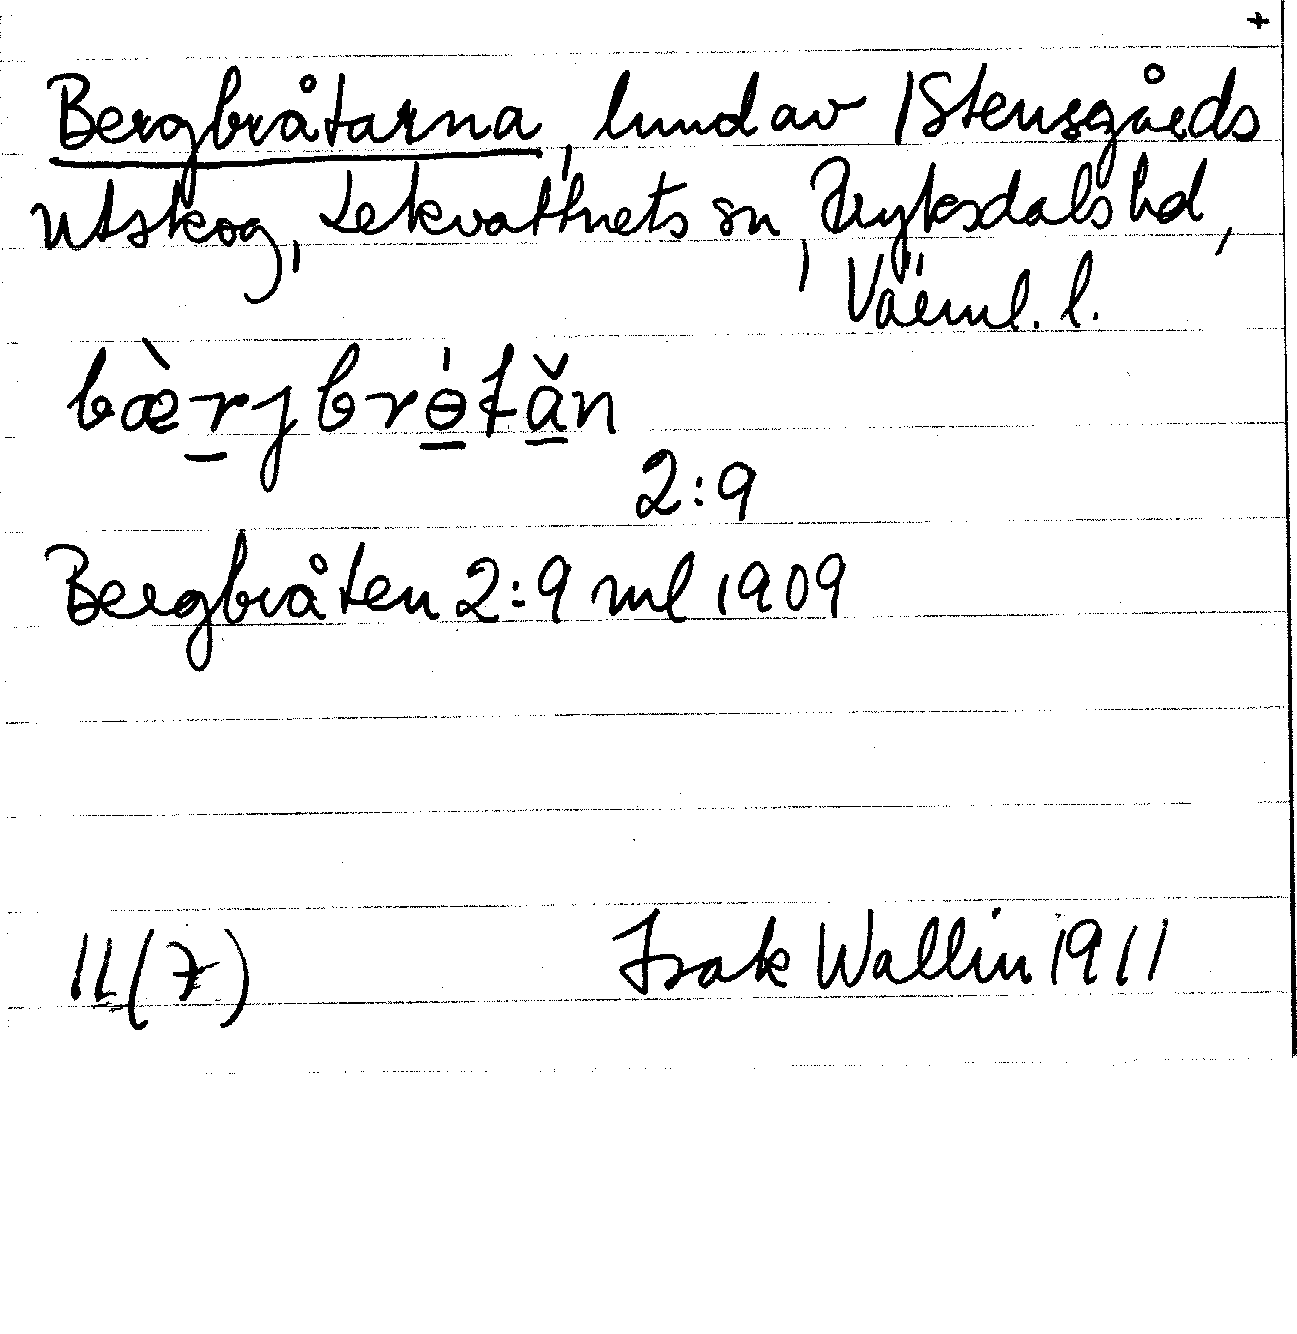 +
Bergbråtarna, lund av 1 Stensgårds
utskog, Lekvattnets sn, Fryksdals hd,
Värml. l.
bæ̀rjbrɵ́tăn
2:9
Bergbråten 2:9 ml 1909
11(7)
Isak Wallin 1911